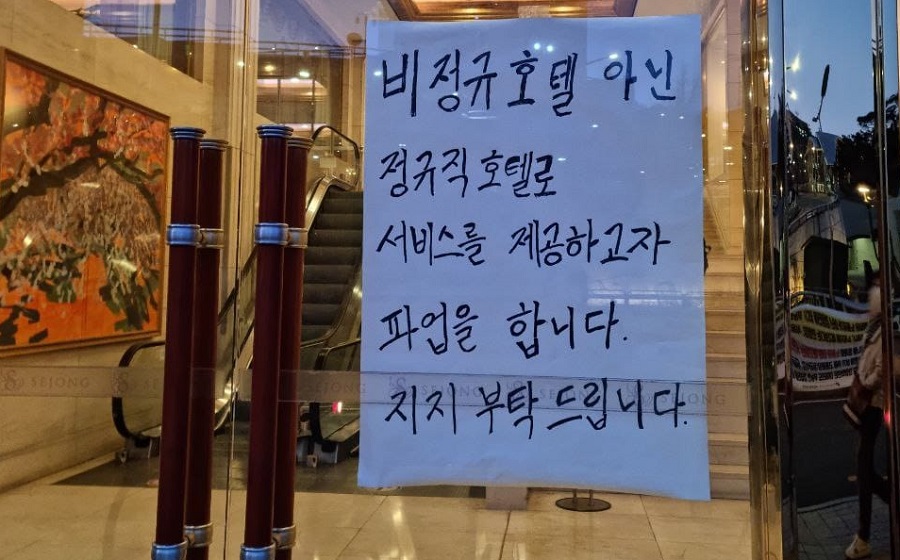 비정규호텔 아닌
정규직호텔로
서비스를 제공하고자
파업을 합니다.
지지 부탁드립니다.
SEJONG
SEJONG
SEJONG
SEJONG